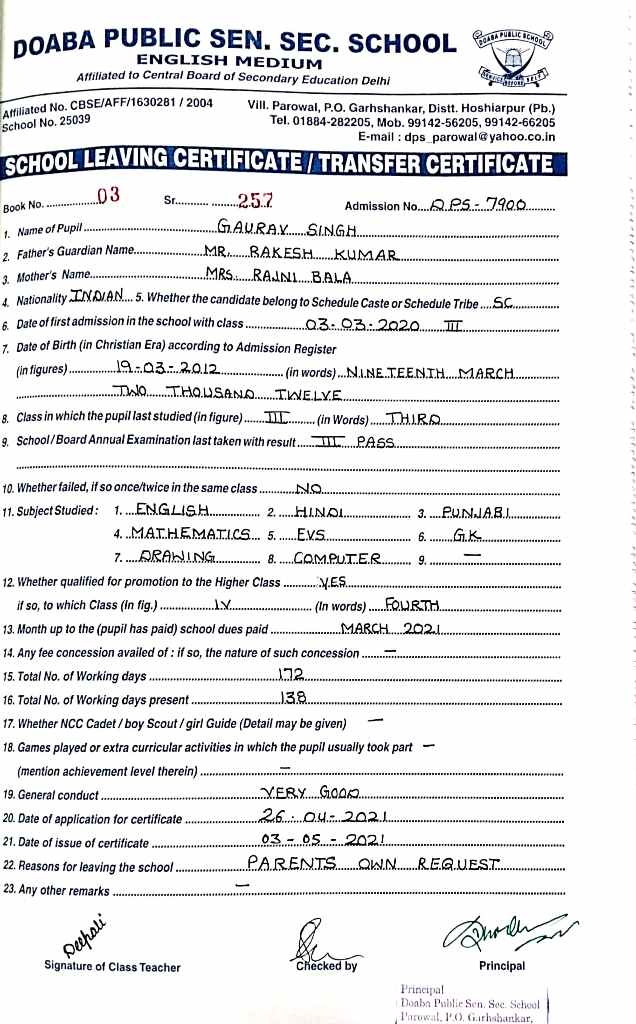 DOABA PUBLIC SEN. SEC. SCHOOL
ENGLISH MEDIUM
Affiliated to Central Board of Secondary Education Delhi
DOABA PUBLIC SCHOOL
SERVICE BEFORE SELF
Affiliated No. CBSE/AFF/1630281 / 2004
School No. 25039
Vill. Parowal, P.O. Garhshankar, Distt. Hoshiarpur (Pb.)
Tel. 01884-282205, Mob. 99142-56205, 99142-66205
E-mail : dps_parowal@yahoo.co.in
SCHOOL LEAVING CERTIFICATE / TRANSFER CERTIFICATE
Book No. 03 Sr. 257 Admission No. DPS-7900
1. Name of Pupil GAURAV SINGH
2. Father's Guardian Name MR. RAKESH KUMAR
3. Mother's Name MRS. RAJNI BALA
4. Nationality INDIAN 5. Whether the candidate belong to Schedule Caste or Schedule Tribe SC
6. Date of first admission in the school with class 03-03-2020 III
7. Date of Birth (in Christian Era) according to Admission Register
(in figures) 19-03-2012 (in words) NINETEENTH MARCH
TWO THOUSAND TWELVE
8. Class in which the pupil last studied (in figure) III (in Words) THIRD
9. School/Board Annual Examination last taken with result III PASS
10. Whether failed, if so once/twice in the same class NO
11. Subject Studied : 1. ENGLISH 2. HINDI 3. PUNJABI
4. MATHEMATICS 5. EVS 6. G.K
7. DRAWING 8. COMPUTER 9. —
12. Whether qualified for promotion to the Higher Class YES
if so, to which Class (In fig.) IV (In words) FOURTH
13. Month up to the (pupil has paid) school dues paid MARCH 2021
14. Any fee concession availed of : if so, the nature of such concession —
15. Total No. of Working days 172
16. Total No. of Working days present 138
17. Whether NCC Cadet / boy Scout / girl Guide (Detail may be given) —
18. Games played or extra curricular activities in which the pupil usually took part —
(mention achievement level therein) —
19. General conduct VERY GOOD
20. Date of application for certificate 26-04-2021
21. Date of issue of certificate 03-05-2021
22. Reasons for leaving the school PARENTS OWN REQUEST
23. Any other remarks —
Deepali
Signature of Class Teacher Checked by Principal
Principal
Doaba Public Sen. Sec. School
Parowal, P.O. Garhshankar,